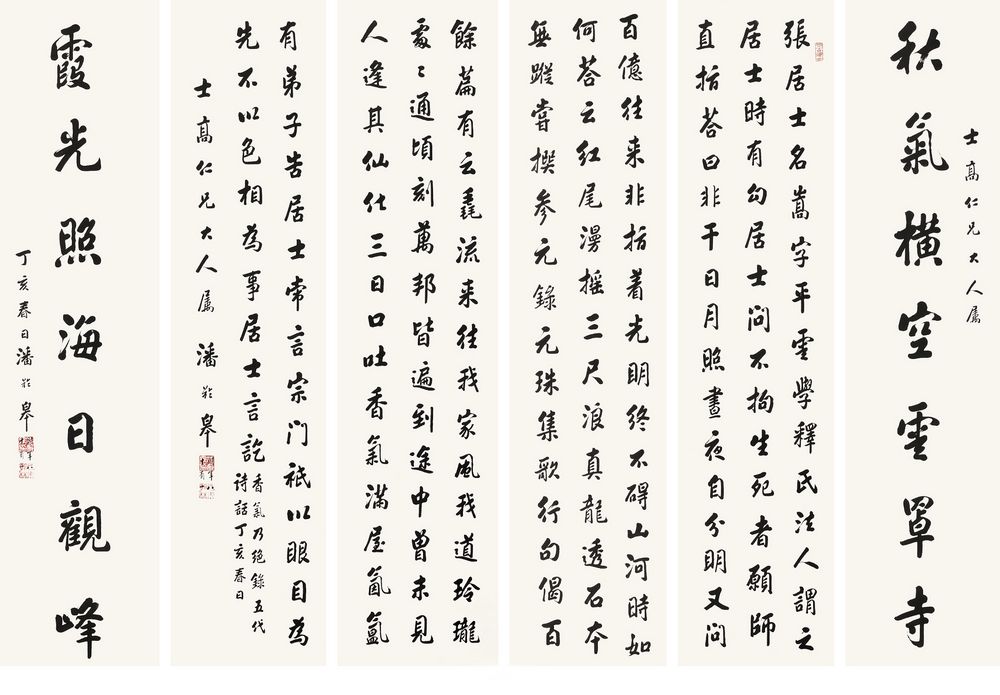 士高仁兄大人属
秋氣橫空雲罩寺
張居士名嵩字平雲學釋氏法人謂之
居士時有句居士問不拘生死者願師
直指答曰非干日月照晝夜自分明又問
百億往来非指着光明終不碍山河時如
何答云紅尾漫摇三尺浪真龍透石本
無蹤嘗撰參元錄元珠集歌行句偈百
餘篇有云毳流来往我家風我道玲瓏
處〻通頃刻萬邦皆遍到途中曾未見
人逢其仙仕三日口吐香氣滿屋氤氳
有弟子告居士常言宗門祇以眼目為
先不以色相為事居士言訖
香氣乃絕錄五代
詩話丁亥春日
士高仁兄大人属
潘齡皋
霞光照海日觀峰
丁亥春日潘齡皋